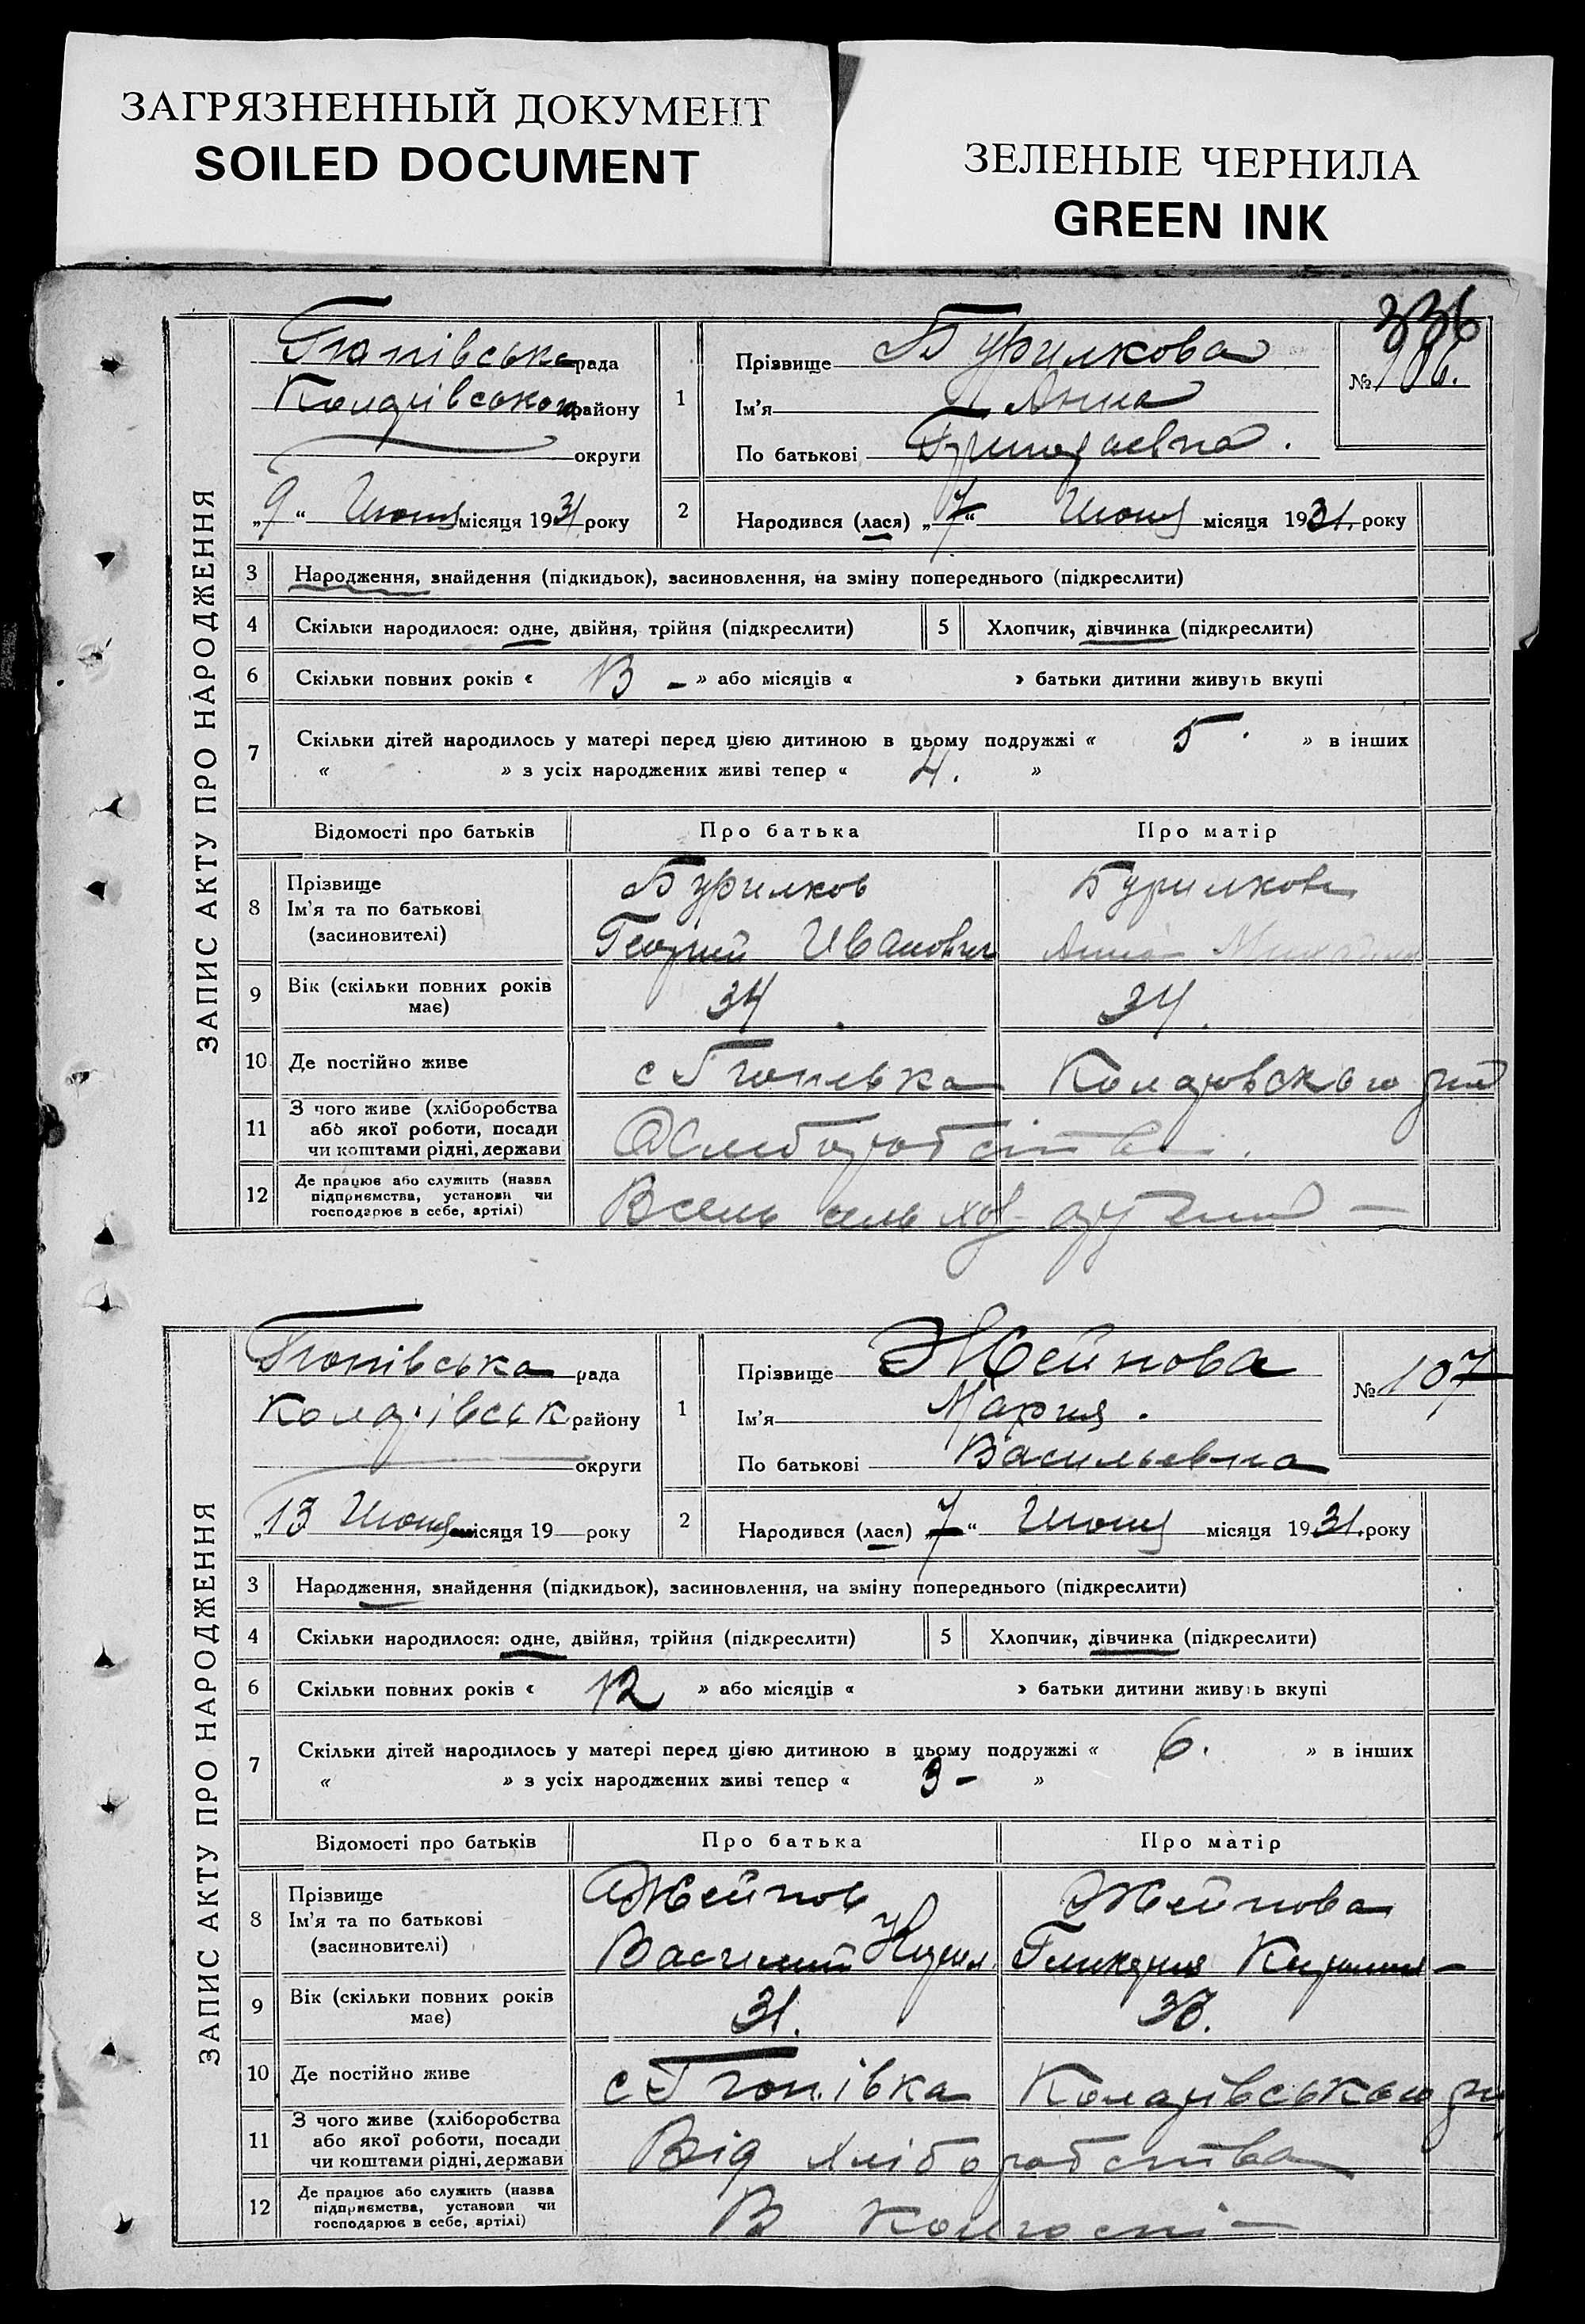 ЗАГРЯЗНЕННЫЙ ДОКУМЕНТ
SOILED DOCUMENT
ЗЕЛЕНЫЕ ЧЕРНИЛА
GREEN INK
336
ЗАПИС АКТУ ПРО НАРОДЖЕННЯ
рада
району
округи
„9“ Июня місяця 1931 року
1
Прізвище Бурилкова
Ім'я Анна
По батькові
№ 106.
2
Народився (лася) „7“ Июня місяця 1931. року
3 Народження, знайдення (підкидьок), засиновлення, на зміну попереднього (підкреслити)
4 Скільки народилося: одне, двійня, трійня (підкреслити)
5 Хлопчик, дівчинка (підкреслити)
6 Скільки повних років « » або місяців « » батьки дитини живуть вкупі
7 Скільки дітей народилось у матері перед цією дитиною в цьому подружжі « 5. » в інших
« » з усіх народжених живі тепер « 4. »
Відомості про батьків
Про батька
Про матір
8
Прізвище
Ім'я та по батькові
(засиновителі)
Бурилков
Георгий Иванович
Бурилкова
Анна
9
Вік (скільки повних років
має)
34
34.
10 Де постійно живе
с
11
З чого живе (хліборобства
або якої роботи, посади
чи коштами рідні, держави
12
Де працює або служить (назва
підприємства, установи чи
господарює в себе, артілі)
ЗАПИС АКТУ ПРО НАРОДЖЕННЯ
рада
району
округи
„13 Июня місяця 19 року
1
Прізвище Жейнова
Ім'я Мария.
По батькові Васильевна
№ 107
2
Народився (лася) „7“ Июня місяця 1931. року
3 Народження, знайдення (підкидьок), засиновлення, на зміну попереднього (підкреслити)
4 Скільки народилося: одне, двійня, трійня (підкреслити)
5 Хлопчик, дівчинка (підкреслити)
6 Скільки повних років « 12 » або місяців « » батьки дитини живуть вкупі
7 Скільки дітей народилось у матері перед цією дитиною в цьому подружжі « 6. » в інших
« » з усіх народжених живі тепер « 3 - »
Відомості про батьків
Про батька
Про матір
8
Прізвище
Ім'я та по батькові
(засиновителі)
Жейнов
Василий
Жейнова
9
Вік (скільки повних років
має)
31.
10 Де постійно живе
с
11
З чого живе (хліборобства
або якої роботи, посади
чи коштами рідні, держави
Від хліборобства
12
Де працює або служить (назва
підприємства, установи чи
господарює в себе, артілі)
В колгоспі —